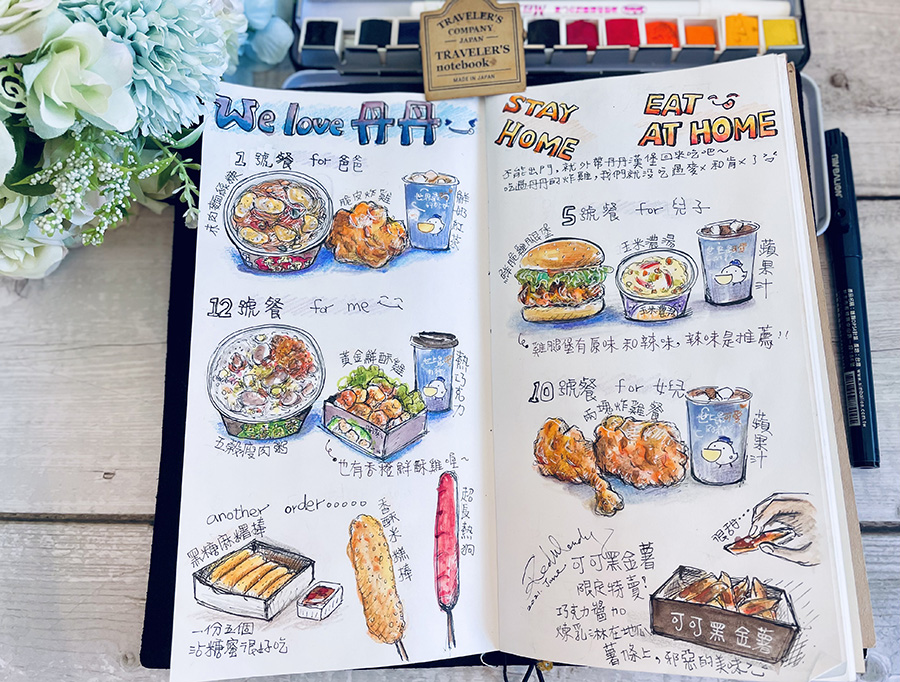 TRAVELER'S
COMPANY
JAPAN
TRAVELER'S
notebook
MADE IN JAPAN
We love 丹丹
1號餐 for 爸爸
脆皮炸雞
鮮奶紅茶
12號餐 for me
五穀瘦肉粥
黃金鮮酥雞
熱巧克力
也有香橙鮮酥雞喔~
another order.....
黑糖麻糬棒
一份五個
沾糖蜜很好吃
香酥米糕棒
超長熱狗
STAY
HOME
EAT
AT HOME
不能出門,就外帶丹丹漢堡回來吃吧~
吃過丹丹的炸雞,我們就沒吃過麥x和肯x了
5號餐 for 兒子
鮮脆雞腿堡
玉米濃湯
玉米濃湯
蘋果汁
雞腿堡有原味和辣味,辣味是推薦!!
10號餐 for 女兒
兩塊炸雞餐
蘋果汁
很甜...
可可黑金薯
限定特賣!
巧克力醬加
煉乳淋在地瓜
薯條上,邪惡的美味
可可黑金薯
2021. June